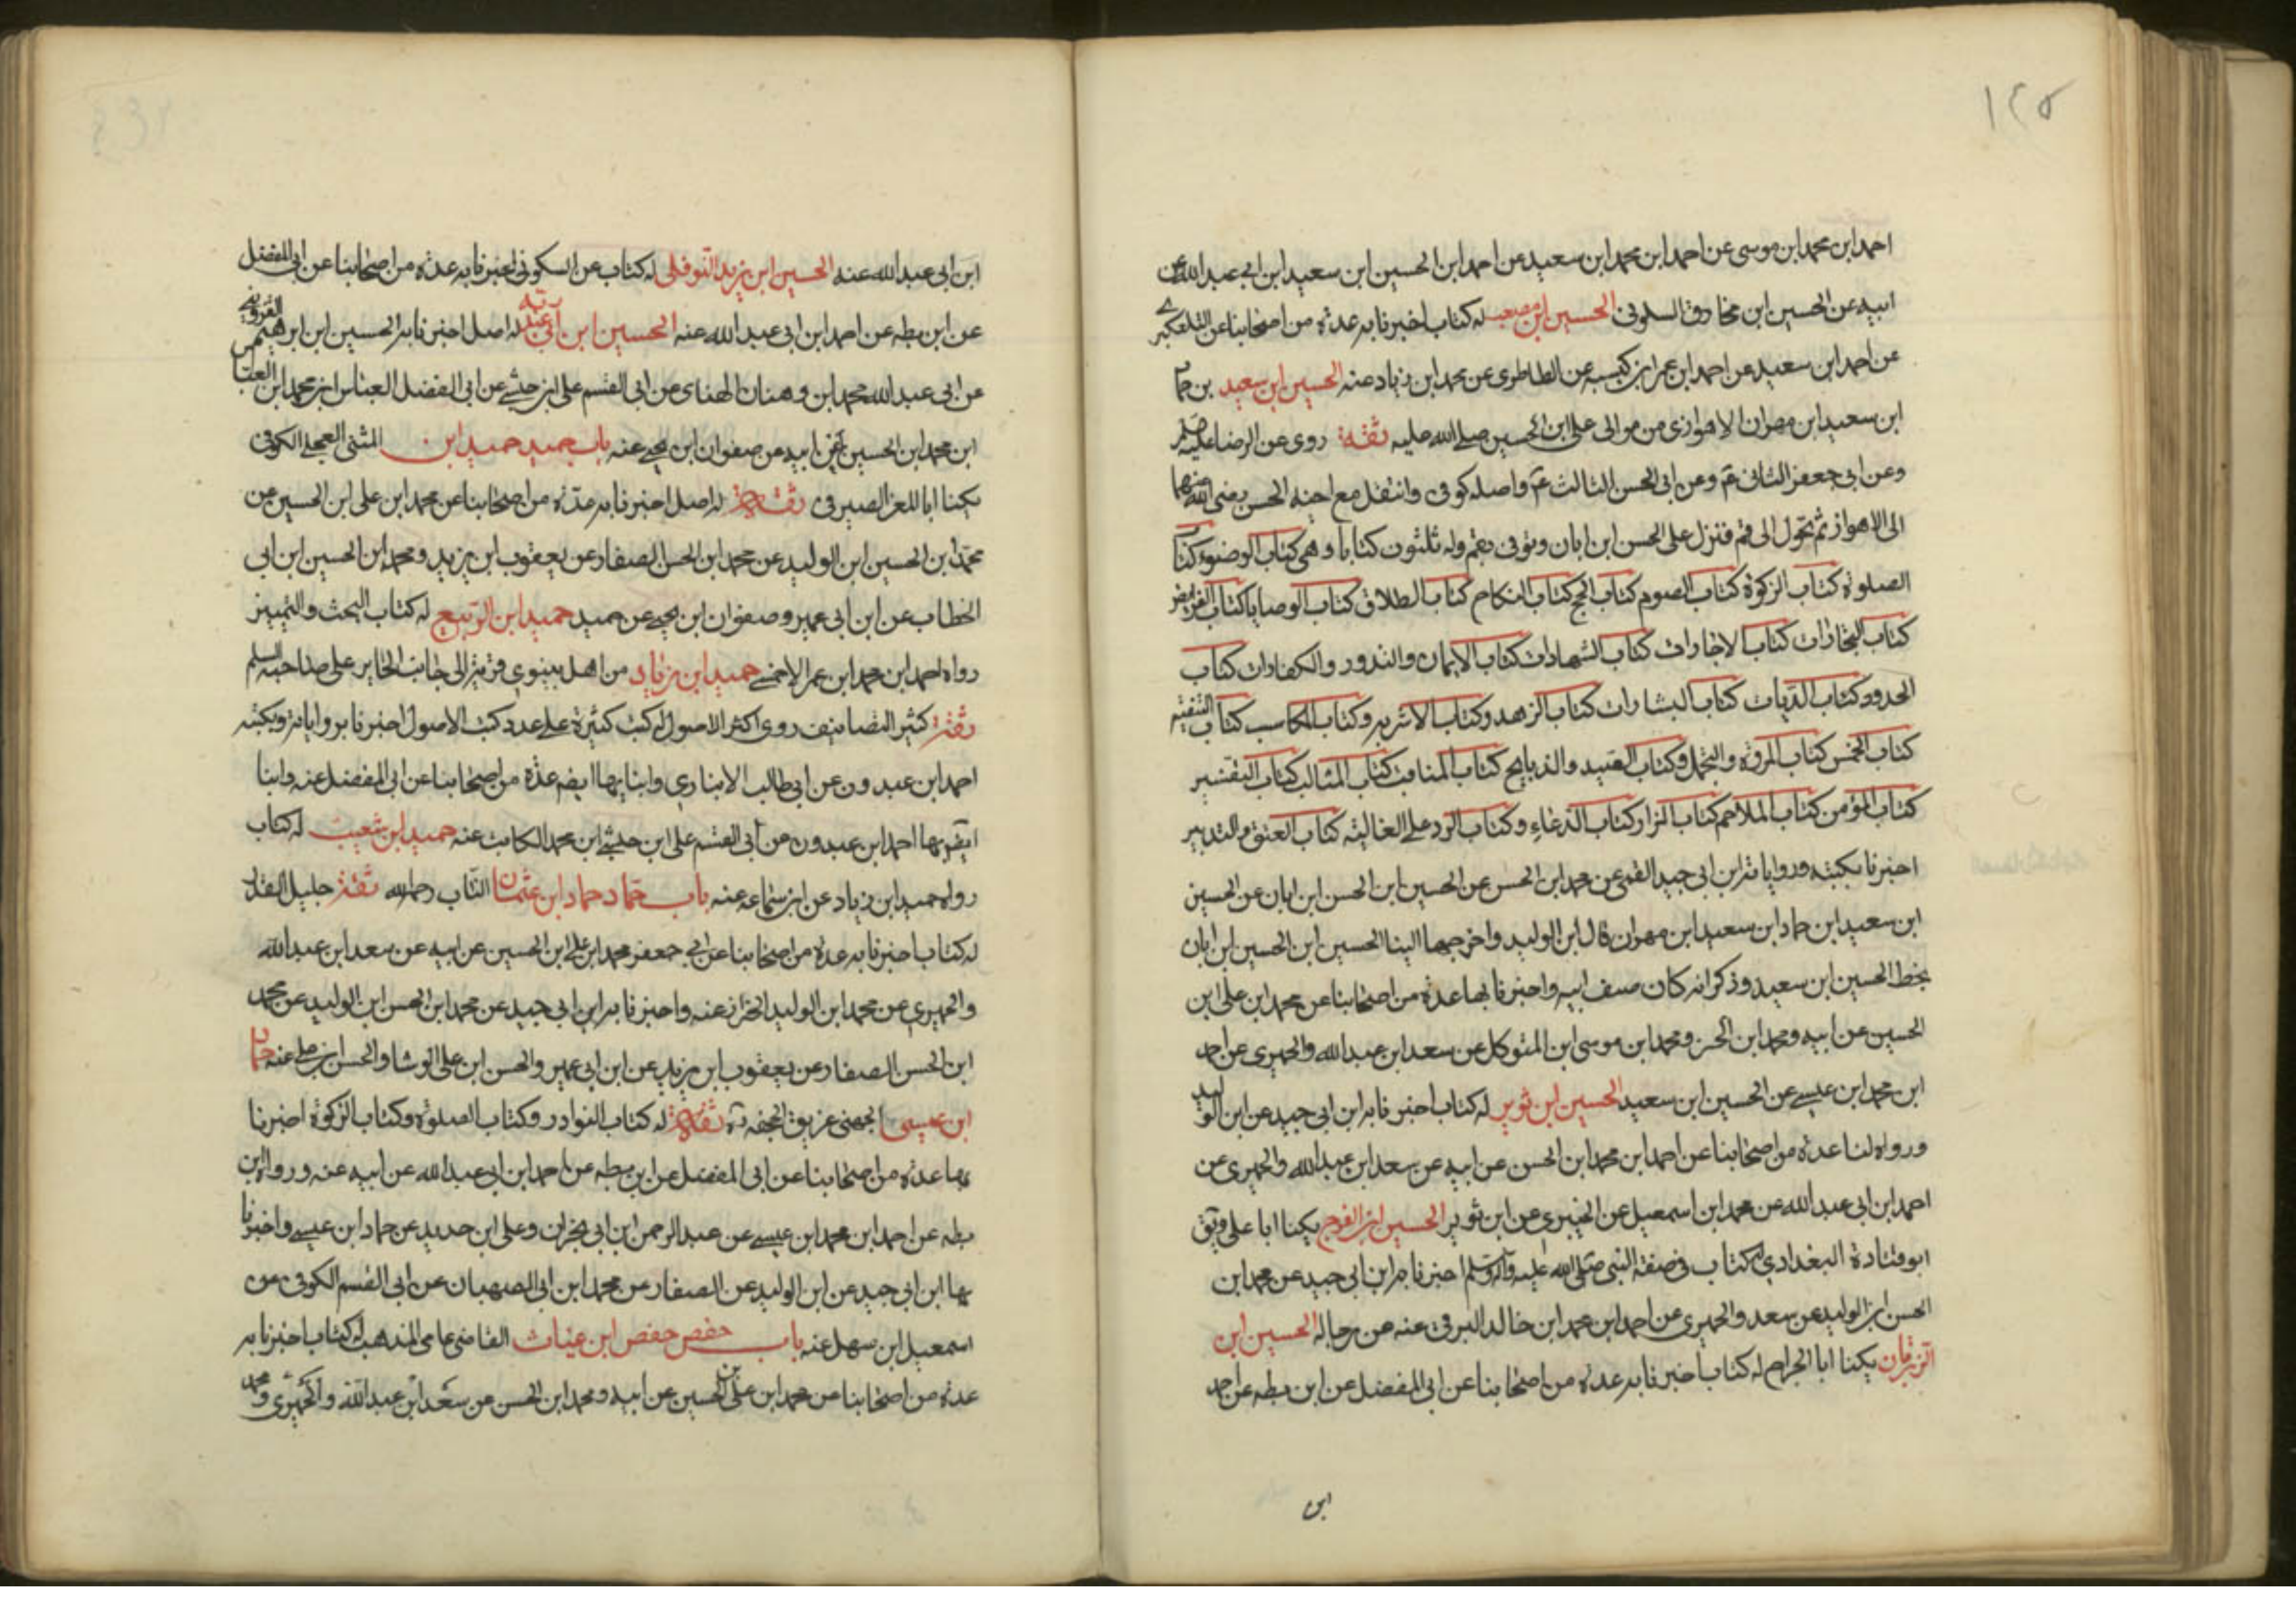 ١٢٥
احمد ابن محمد ابن موسى عن احمد ابن محمد ابن سعيد عن احمد ابن الحسين ابن سعيد ابن ابي عبدالله عن
ابيه عن الحسين ابن مخارق السلوني الحسين ابن مصعب له كتاب اخبرنا به عدة من اصحابنا عن التلعكبري
عن احمد ابن سعيد عن احمد ابن عمر ابن كيسبه عن الطاطرى عن محمد ابن زياد عنه الحسين ابن سعيد بن حماد
ابن سعيد ابن مهران الاهوازى من موالى على ابن الحسين صلى الله عليه ثقة روى عن الرضا عليه
وعن ابى جعفر الثانى عم وعن ابى الحسن الثالث عم واصله كوفى وانتقل مع اخيه الحسن رضى الله عنهما
الى الاهواز ثم تحول الى قم فنزل على الحسن ابن ابان وتوفى بقم وله ثلثون كتابا وهى كتاب الوضوء كتاب
الصلوة كتاب الزكوة كتاب الصوم كتاب الحج كتاب النكاح كتاب الطلاق كتاب الوصايا كتاب الفرايض
كتاب التجارات كتاب الاجارات كتاب الشهادات كتاب الايمان والنذور والكفارات كتاب
الحدود كتاب الديات كتاب البشارات كتاب الزهد وكتاب الاشربه وكتاب المكاسب كتاب التقيه
كتاب الخمس كتاب المروة والتجمل وكتاب الصيد والذبايح كتاب المناقب كتاب المثالب كتاب التفسير
كتاب المؤمن كتاب الملاحم كتاب المزار كتاب الدعاء وكتاب الرد على الغاليه كتاب العتق والتدبير
اخبرنا بكتبه ورواياته ابن ابى جيد القمى عن محمد ابن الحسن عن الحسين ابن الحسن ابن ابان عن الحسين
ابن سعيد ابن حماد ابن سعيد ابن مهران قال ابن الوليد واخرجها الينا الحسين ابن الحسين ابن ابان
بخط الحسين ابن سعيد وذكر انه كان ضيف ابيه واخبرنا بها عدة من اصحابنا عن محمد ابن على ابن
الحسين عن ابيه ومحمد ابن الحسن ومحمد ابن موسى ابن المتوكل عن سعد ابن عبدالله والحميرى عن احمد
ابن محمد ابن عيسى عن الحسين ابن سعيد الحسين ابن ثوير له كتاب اخبرنا به ابن ابى جيد عن ابن الوليد
ورواه لنا عدة من اصحابنا عن احمد ابن محمد ابن الحسن عن ابيه عن سعد ابن عبدالله والحميرى عن
احمد ابن ابى عبدالله عن محمد ابن اسمعيل عن الخيبرى عن ابن ثوير الحسين ابن الفرج يكنا ابا على
ابو قتادة البغدادى له كتاب فى صفة النبى صلى الله عليه وآله وسلم اخبرنا به ابن ابى جيد عن محمد ابن
الحسن ابن الوليد عن سعد والحميرى عن احمد ابن محمد ابن خالد البرقى عنه عن رجاله الحسين ابن
الزبرقان يكنا ابا الخرام له كتاب اخبرنا به عدة من اصحابنا عن ابى المفضل عن ابن بطه عن احمد
ابن
ابن ابى عبدالله عنه الحسين ابن يزيد النوفلى له كتاب عن السكونى اخبرنا به عدة من اصحابنا عن ابى المفضل
عن ابن بطه عن احمد ابن ابى عبدالله عنه الحسين ابن ابى غندر له اصل اخبرنا به الحسين ابن ابرهيم القزوينى
عن ابى عبدالله محمد ابن وهبان الهناى عن ابى القسم على ابن حبشى عن ابى الفضل العباس ابن محمد ابن
ابن محمد ابن الحسين عن ابيه عن صفوان ابن يحيى عنه باب حميد حميد ابن المثنى العجلى الكوفى
يكنا ابا المغرا الصيرفى ثقة له اصل اخبرنا به عدة من اصحابنا عن محمد ابن على ابن الحسين عن
محمد ابن الحسين ابن الوليد عن محمد ابن الحسن الصفار عن يعقوب ابن يزيد ومحمد ابن الحسين ابن ابى
الخطاب عن ابن ابى عمير وصفوان ابن يحيى عن حميد حميد ابن الربيع له كتاب البحث والتمييز
رواه احمد ابن محمد ابن عمر الاحمسى حميد ابن زياد من اهل نينوى قرية الى جانب الحاير على صاحبه السلم
ثقة كثير التصانيف روى اكثر الاصول له كتب كثيرة على عدد كتب الاصول اخبرنا برواياته وبكتبه
احمد ابن عبدون عن ابى طالب الانبارى وانبا بها ايضه عدة من اصحابنا عن ابى المفضل عنه وانبا
ايضه بها احمد ابن عبدون عن ابى القسم على ابن حبشى ابن محمد الكاتب عنه حميد ابن شعيب له كتاب
رواه حميد ابن زياد عن ابن سماعه عنه باب حماد حماد ابن عثمان الناب رحمه الله ثقة جليل القدر
له كتاب اخبرنا به عدة من اصحابنا عن ابى جعفر محمد ابن على ابن الحسين عن ابيه عن سعد ابن عبدالله
والحميرى عن محمد ابن الوليد الخزاز عنه واخبرنا به ابن ابى جيد عن محمد ابن الحسن ابن الوليد عن محمد
ابن الحسن الصفار عن يعقوب ابن يزيد عن ابن ابى عمير والحسن ابن على الوشا والحسن ابن على عنه حماد
ابن عيسى الجهنى غريق الجحفه ثقة له كتاب النوادر وكتاب الصلوة وكتاب الزكوة اخبرنا
بها عدة من اصحابنا عن ابى المفضل عن ابن بطه عن احمد ابن ابى عبدالله عن ابيه عنه ورواه ابن
بطه عن احمد ابن محمد ابن عيسى عن عبد الرحمن ابن ابى نجران وعلى ابن حديد عن حماد ابن عيسى واخبرنا
بها ابن ابى جيد عن ابن الوليد عن الصفار عن محمد ابن ابى الصهبان عن ابى القسم الكوفى عن
اسمعيل ابن سهل عنه باب حفص حفص ابن غياث القاضى عامى المذهب له كتاب اخبرنا به
عدة من اصحابنا عن محمد ابن على بن الحسين عن ابيه ومحمد ابن الحسن عن سعد ابن عبدالله والحميرى ومحمد